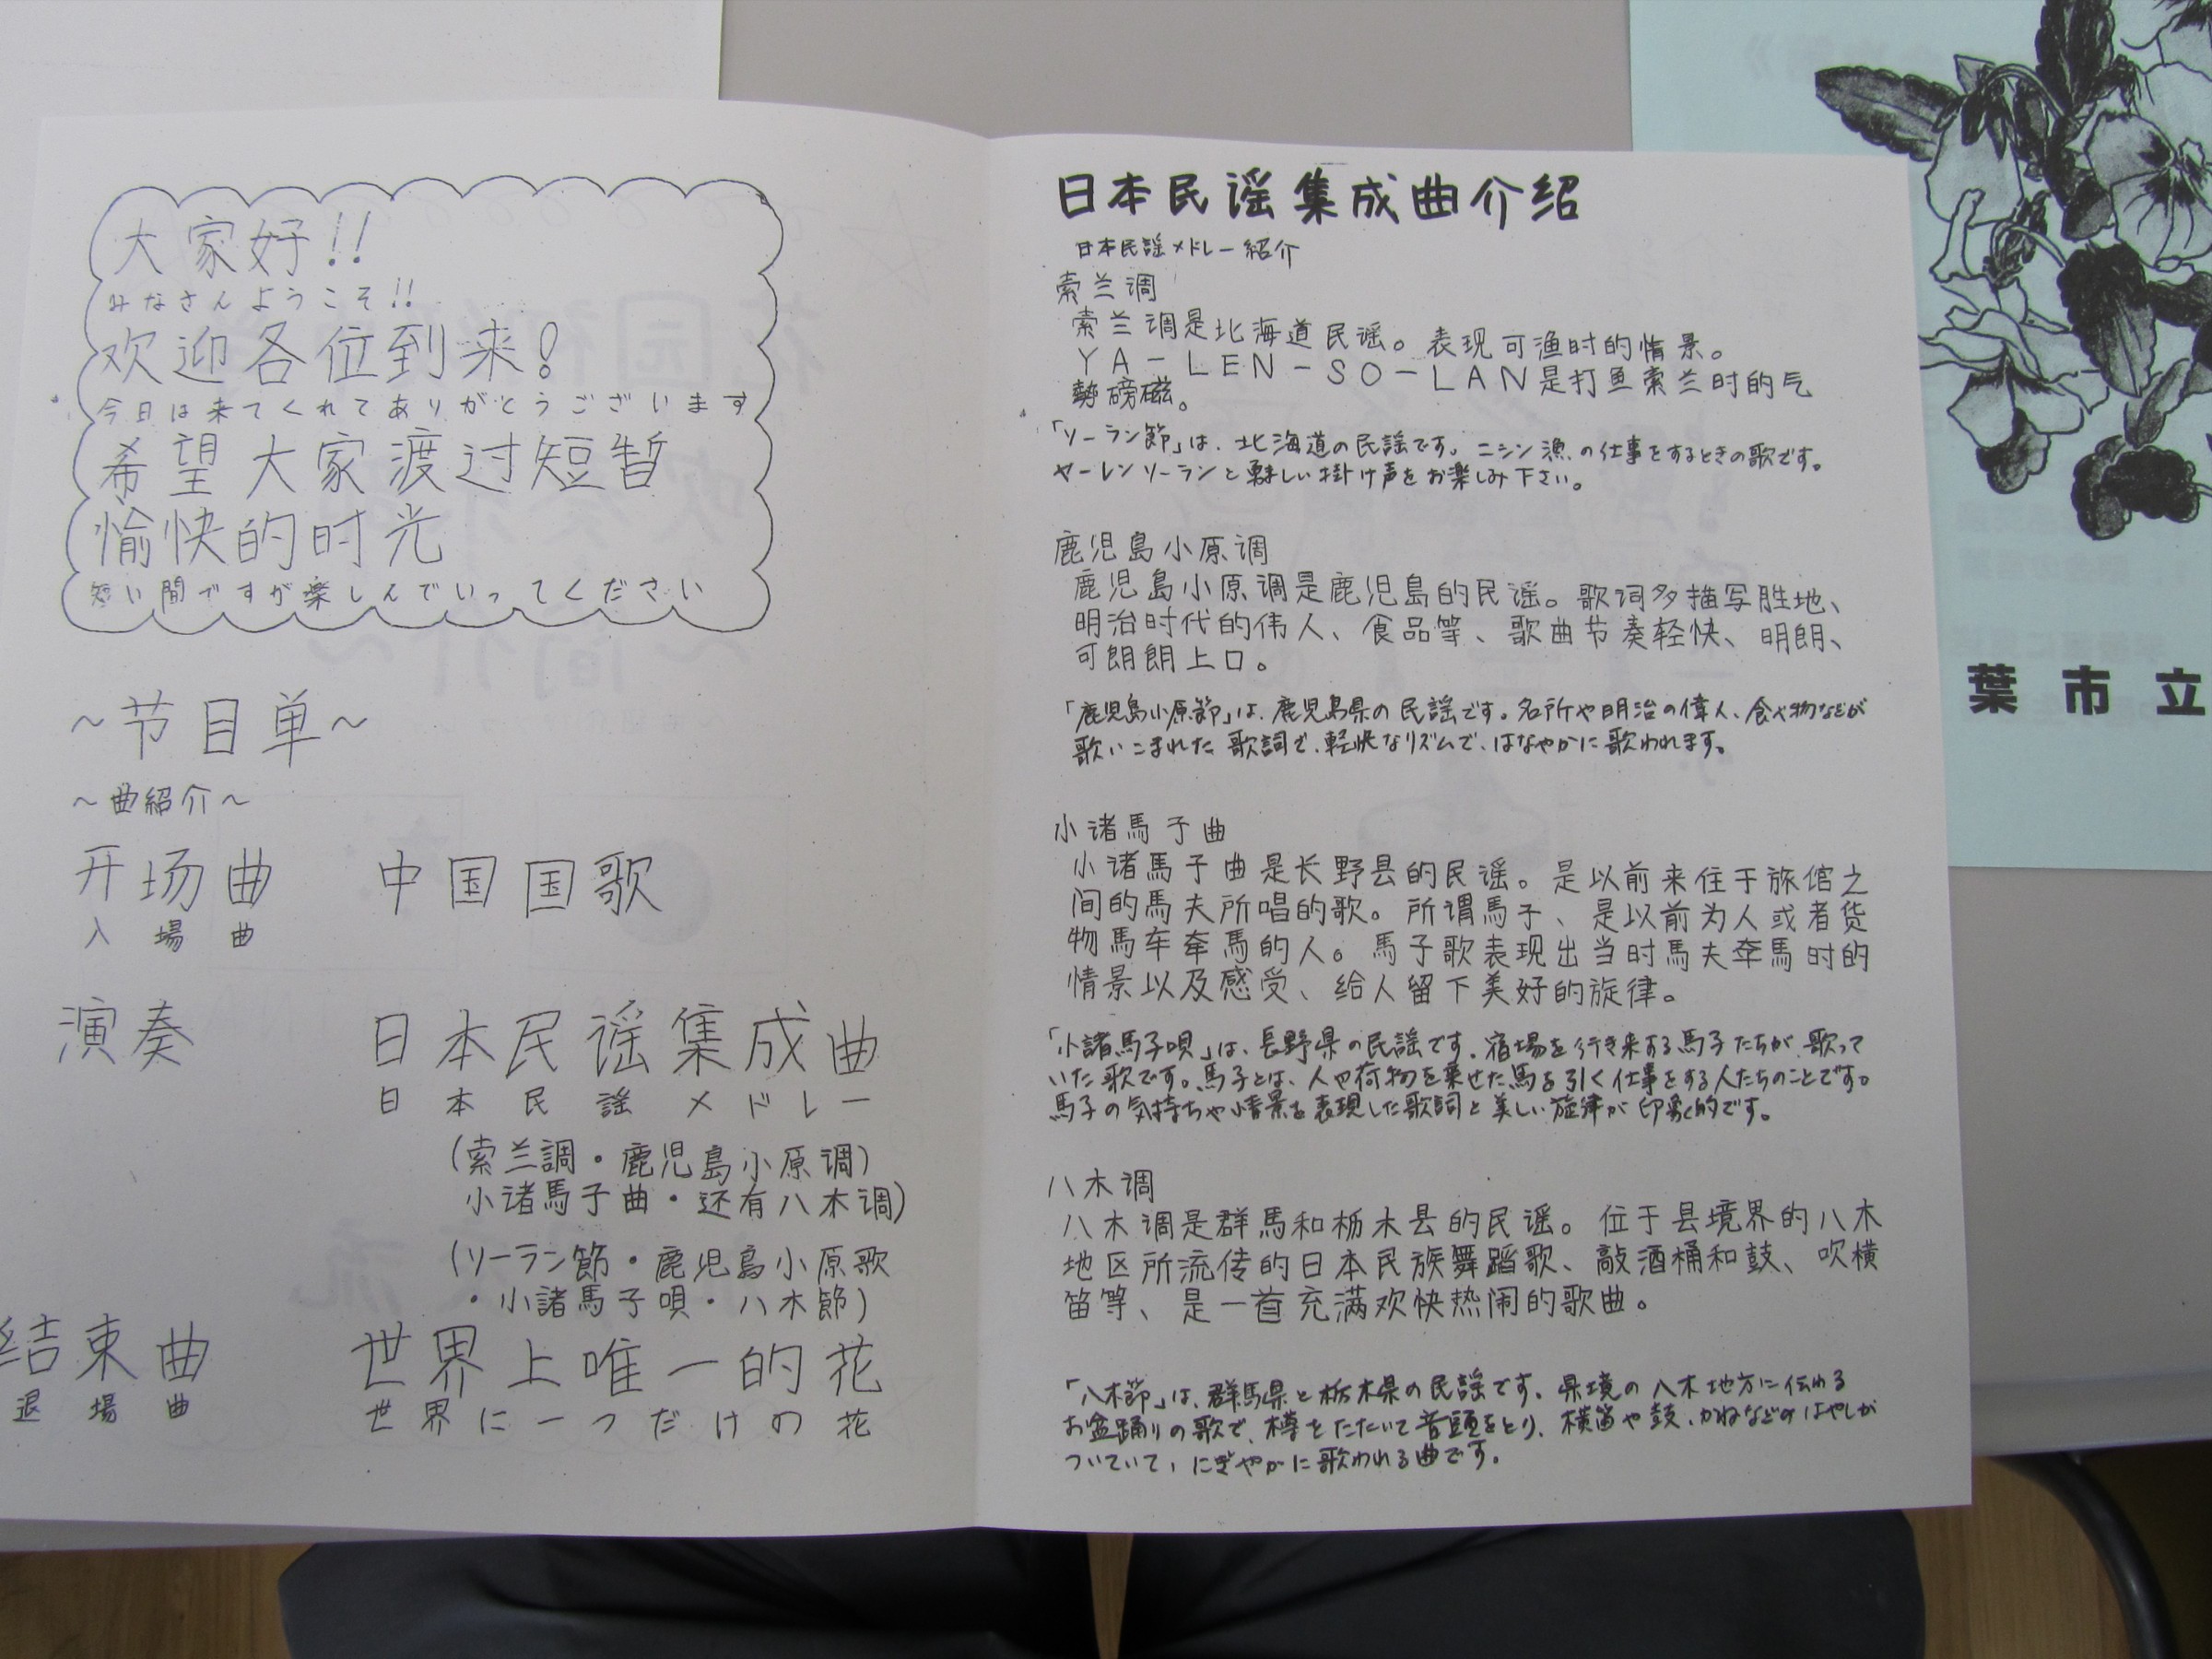 大家好!!
みなさんようこそ!!
欢迎各位到来!
今日は来てくれてありがとうございます
希望大家渡过短暂
愉快的时光
短い間ですが楽しんでいってください
～节目单～
～曲紹介～
开场曲 中国国歌
入場曲
演奏 日本民谣集成曲
日本民謡メドレー
(索兰調・鹿児島小原调)
小诸馬子曲・还有八木调)
(ソーラン節・鹿児島小原歌
・小諸馬子唄・八木節)
结束曲 世界上唯一的花
退場曲 世界に一つだけの花
日本民谣集成曲介绍
日本民謡メドレー紹介
索兰调
索兰调是北海道民谣。表现可渔时的情景。
YA－LEN－SO－LAN是打鱼索兰时的气
勢磅磁。
「ソーラン節」は、北海道の民謡です。ニシン漁の仕事をするときの歌です。
ヤーレンソーランと勇ましい掛け声をお楽しみ下さい。
鹿児島小原调
鹿児島小原调是鹿児島的民谣。歌词多描写胜地、
明治时代的伟人、食品等、歌曲节奏轻快、明朗、
可朗朗上口。
「鹿児島小原節」は、鹿児島県の民謡です。名所や明治の偉人、食べ物などが
歌いこまれた歌詞で、軽快なリズムで、はなやかに歌われます。
小诸馬子曲
小诸馬子曲是长野县的民谣。是以前来住于旅馆之
间的馬夫所唱的歌。所谓馬子、是以前为人或者货
物馬车牵馬的人。馬子歌表现出当时馬夫牵馬时的
情景以及感受、给人留下美好的旋律。
「小諸馬子唄」は、長野県の民謡です。宿場を行き来する馬子たちが、歌って
いた歌です。馬子とは、人や荷物を乗せた馬を引く仕事をする人たちのことです。
馬子の気持ちや情景を表現した歌詞と美しい旋律が印象的です。
八木调
八木调是群馬和栃木县的民谣。位于县境界的八木
地区所流传的日本民族舞蹈歌、敲酒桶和鼓、吹横
笛等、是一首充满欢快热闹的歌曲。
「八木節」は、群馬県と栃木県の民謡です。県境の八木地方に伝わる
お盆踊りの歌で、樽をたたいて音頭をとり、横笛や鼓、かねなどのはやしが
ついていて、にぎやかに歌われる曲です。
葉市立